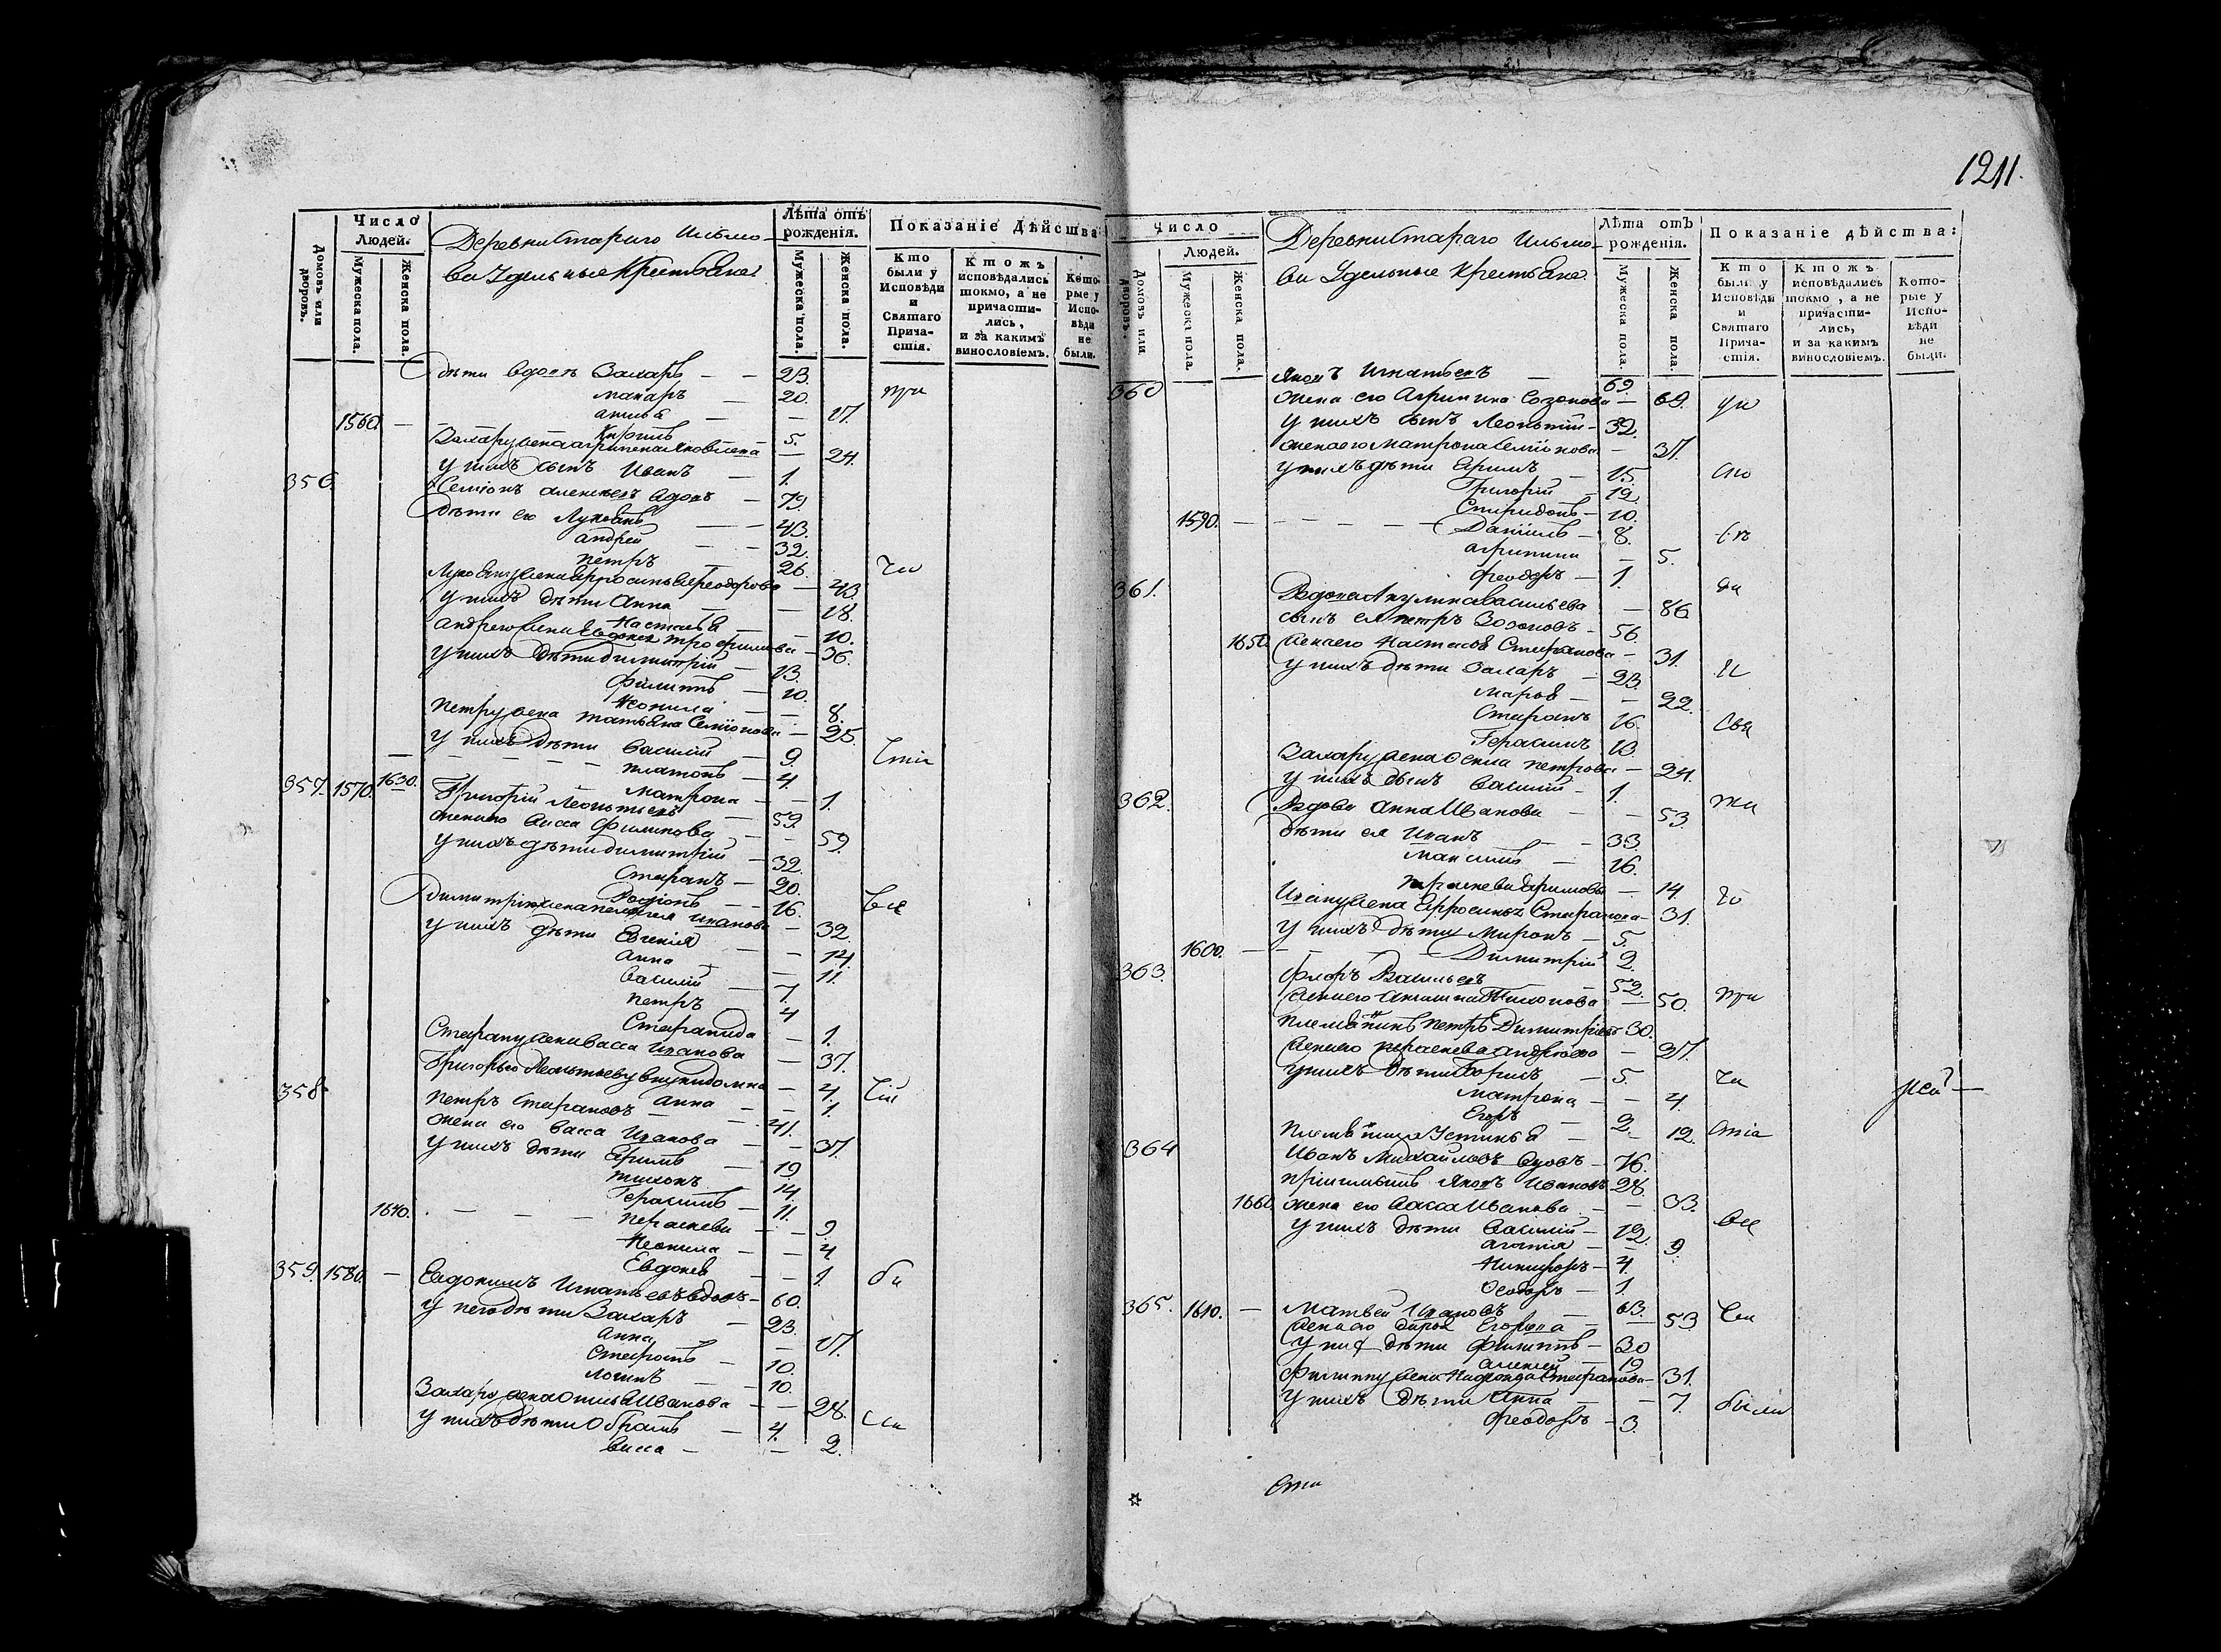 1211.
Число
Людей.
Домовъ или дворовъ.
Мужеска пола.
Женска пола.
Деревни Стараго Ильмо-
ва Удельные Крестьяне
Лѣта отъ рожденія.
Мужеска пола.
Женска пола.
Показаніе Дѣйства
Кто были у Исповѣди и Святаго Прича-стія.
Ктожъ исповѣдались токмо, а не причасти-лись, и за какимъ винословіемъ.
Кото-рые у Испо-вѣди не были.
дѣти вдовъ Захаръ — — 23.
Макаръ — 20. при
— — 17.
1560. — Кирилъ 5.
Захару жена Агрипена Яковлева — 24.
у нихъ сынъ Иванъ — 1.
356. Семіонъ Алексѣевъ вдовъ — 79.
дѣти его Лукоянъ — — 43.
Андрей — — 32.
Петръ — 26. ча
Лукояну жена Ефросинья Феодорова — 43.
у нихъ дѣти Анна — — 18.
Настасья — — 10.
Андрею жена Евдокея Трофимова — 36.
у нихъ дѣти Димитрій — 13.
Филиппъ — 10.
Неонила — — 8.
Петру жена Татьяна Семіонова — 25.
у нихъ дѣти Василій — 9. стіа
Платонъ — 4.
1630. Матрона — — 1.
357. 1570. Григорій Леонтьевъ — 59.
жена его Васса Филипова — — 59.
у нихъ дѣти Димитрій — 32.
Стефанъ — 20.
Родіонъ — — 16. все
Димитрію жена Пелагея Иванова — 32.
у нихъ дѣти Евгенія — — 14.
Анна — 11.
Василій — 7.
Петръ — 4
Степанида — 1.
Стефану жена Васса Иванова — 37.
Григорью Леонтьеву внуки Домна — 4.
Анна — — 1.
358. Петръ Стефановъ — 41.
жена его Васса Иванова — — 37.
у нихъ дѣти Ефимъ — 19.
Тихонъ — 14.
Герасимъ — 11.
1640. — — — Параскева — — 9
Неонила — — 4
Евдокея — — 1.
359. 1580. — Евдокимъ Игнатьевъ вдовъ — 60. бы
у него дѣти Захаръ — 23.
Анна — 17.
— 10.
Логинъ — — 10.
Захару жена Иванова — — 28.
у нихъ дѣти — 4. ли
Васса — — 2.
Число
Людей.
Домовъ или дворовъ.
Мужеска пола.
Женска пола.
Деревни Стараго Ильмо-
ва Удельные Крестьяне
Лѣта отъ рожденія.
Мужеска пола.
Женска пола.
Показаніе дѣйства:
Кто были у Исповѣди и Святаго Прича-стія.
Ктожъ исповѣдались токмо, а не причасти-лись, и за какимъ винословіемъ.
Кото-рые у Испо-вѣди не были.
360 Яковъ Игнатьевъ — 69.
жена его Агрипина Созонова — 69. уи
у нихъ сынъ Леонтій — 32.
жена его Матрона Семіонова — 37.
у нихъ дѣти Ефимъ — 15. спо
Григорій — 12.
Спиридонъ — 10.
1590. — — — — Даніилъ — 8.
Агрипина — 5.
Феодоръ — 1. ди
361. Вдова Акулина Васильева — 86
сынъ ея Петръ Созоновъ — 56.
1650. жена его Настасья Стефанова — 31. и
у нихъ дѣти Захаръ — 23.
Марья — — 22.
Стефанъ 16. свя
Герасимъ 13.
Захару жена Петрова — 24.
у нихъ сынъ Василій — 1. та
362. Вдова Анна Иванова — — 53.
дѣти ея Иванъ — — 33.
Максимъ — 16.
Параскева Ефимова — 14. го
Ивану жена Ефросинья Стефанова — 31.
у нихъ дѣти Миронъ — 5.
1600. — — Димитрій 2.
363. Флоръ Васильевъ 52.
жена его Тихонова — 50. при
племянникъ Петръ Димитріевъ 30.
жена его Параскева Андреева — 27.
у нихъ дѣти — 5. ча
Матрена — — 4.
Егоръ — 2.
племянница Устинья — — 12. стіа
364 Иванъ Михайловъ вдовъ — 76.
пріимышъ Яковъ Ивановъ 28.
1660. жена его Васса Иванова — — 33. все
у нихъ дѣти Василій — 12.
— 9.
Никифоръ — 4.
Феодоръ — 1.
365. 1610. — Матвей Ивановъ — 63.
жена его Дарья Егорова — 53
у них дѣти Филиппъ — 30
Алексей — 19
Филиппу жена Надежда Стефанова — 31.
у нихъ дѣти Анна — — 7. были
Феодоръ — 3.